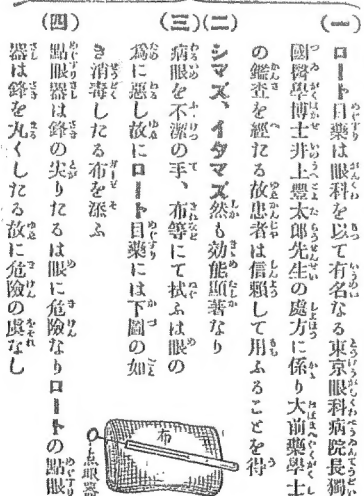 (一) ロート目藥は眼科を以て有名なる東京眼科病院長獨
國醫學博士井上豊太郎先生の處方に係り大前藥學士
の鑑査を經たる故患者は信頼して用ふることを得
(二) シマズ、イタマズ然も効能顯著なり
(三) 病眼を不潔の手、布等にて拭ふは眼の
爲に惡し故にロート目藥には下圖の如
き消毒したる布を添ふ
(四) 點眼器は鋒の尖りたるは眼に危險なりロートの點眼
器は鋒を丸くしたる故に危險の虞なし
布
点眼器